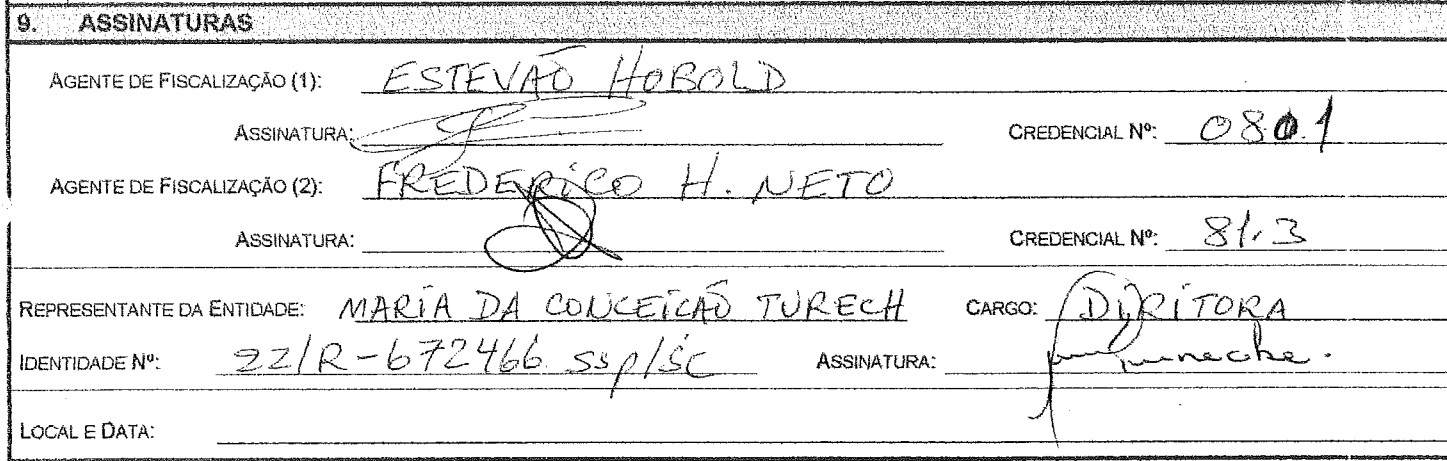 9. ASSINATURAS
AGENTE DE FISCALIZAÇÃO (1): ESTEVÃO HOBOLD
ASSINATURA: CREDENCIAL Nº: 080.1
AGENTE DE FISCALIZAÇÃO (2): FREDERICO H. NETO
ASSINATURA: CREDENCIAL Nº: 81.3
REPRESENTANTE DA ENTIDADE: MARIA DA CONCEICÃO TURECH CARGO: DIRITORA
IDENTIDADE Nº: 22/R-672466 SSP/SC ASSINATURA:
LOCAL E DATA: